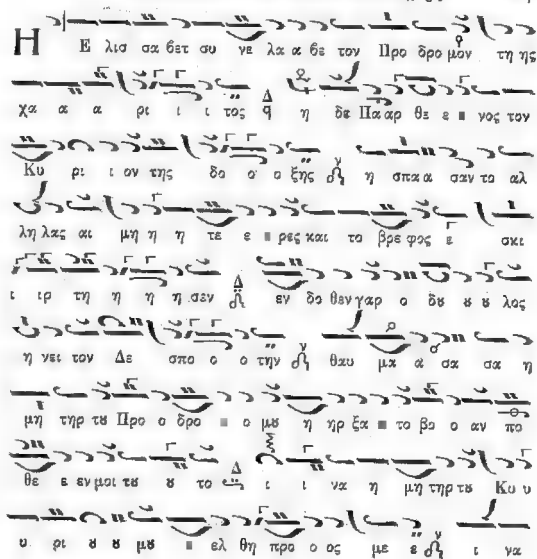 Η Ε λισ σα βετ συ νε λα α βε τον Προ δρο μον τη ης
χα α α ρι ι ι τος Δ η δε Πα αρ θε ε νος τον
Κυ ρι ι ον της δο ο ο ξης η σπα α σαν το αλ
λη λας αι μη η η τε ε ρες και το βρε φος ε σκι
ι ιρ τη η η η σεν Δ εν δο θεν γαρ ο δȣ ȣ ȣ λος
η νει τον Δε σπο ο ο την θαυ μα α σα σα η
μη τηρ τȣ Προ ο δρο ο μȣ η ηρ ξα το βο ο αν πο
θε ε εν μοι τȣ ȣ το Δ ι ι να η μη τηρ τȣ Κυ υ
υ ρι ȣ ȣ μȣ ελ θη προ ο ος με ε ι να